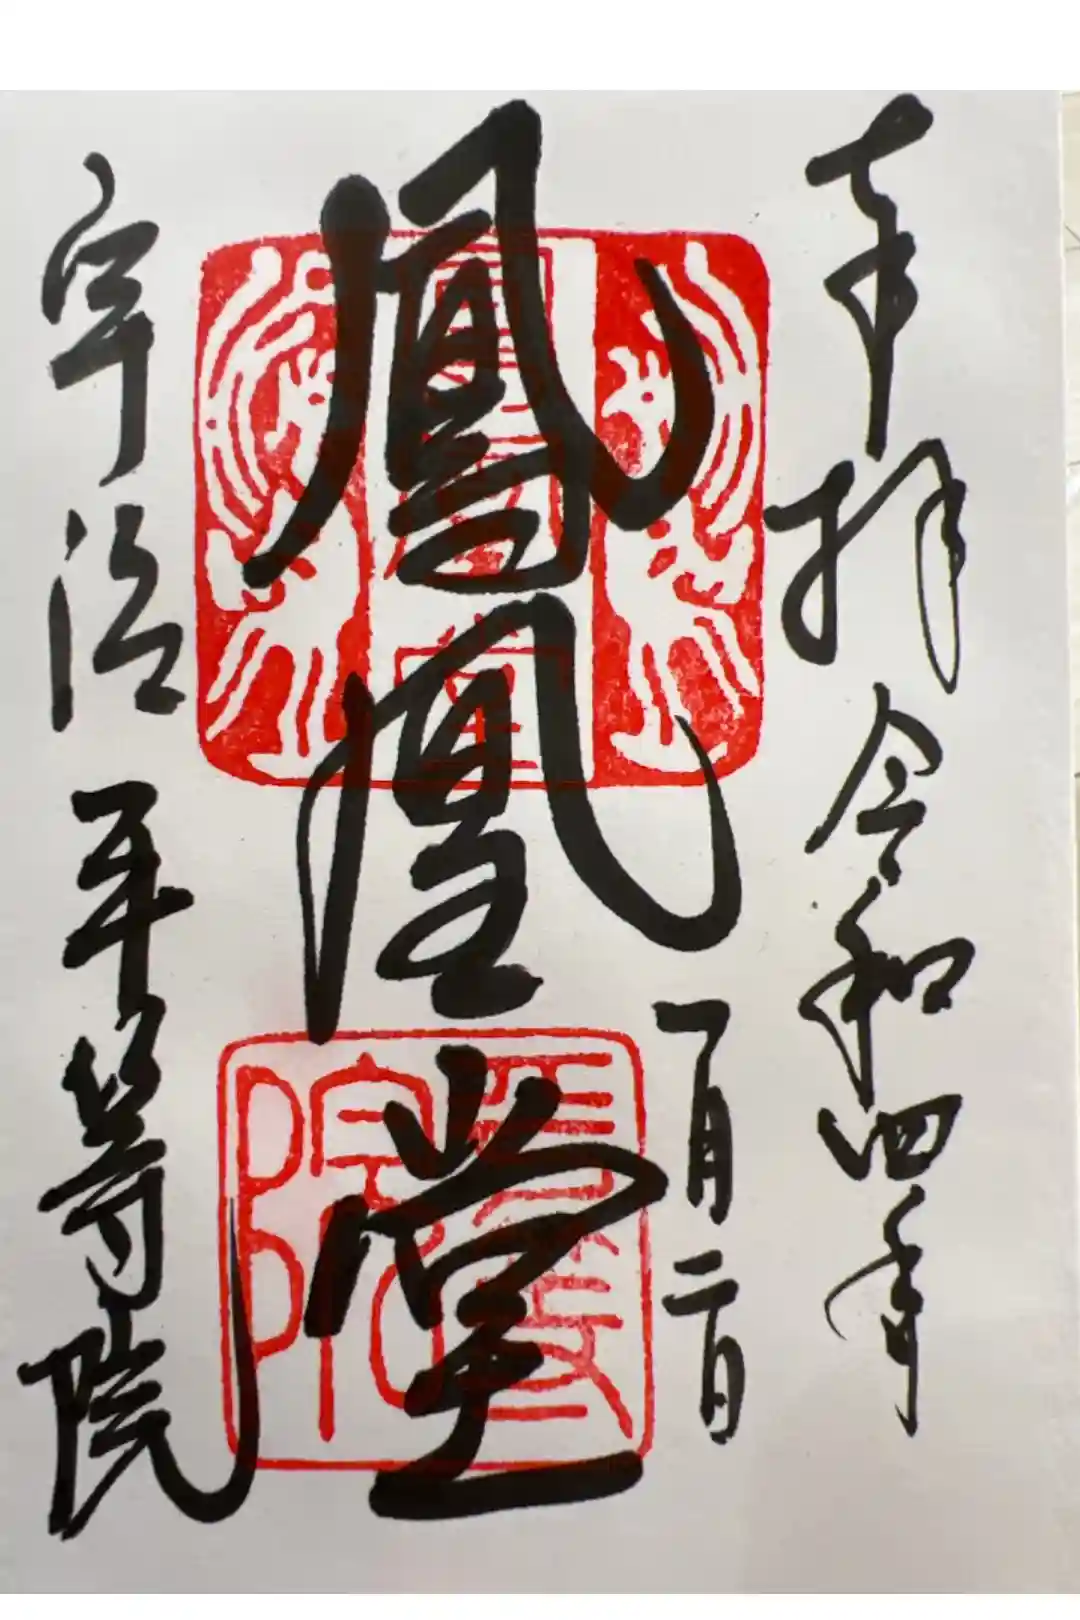 奉拝 令和四年
一月二日
鳳凰堂
宇治 平等院